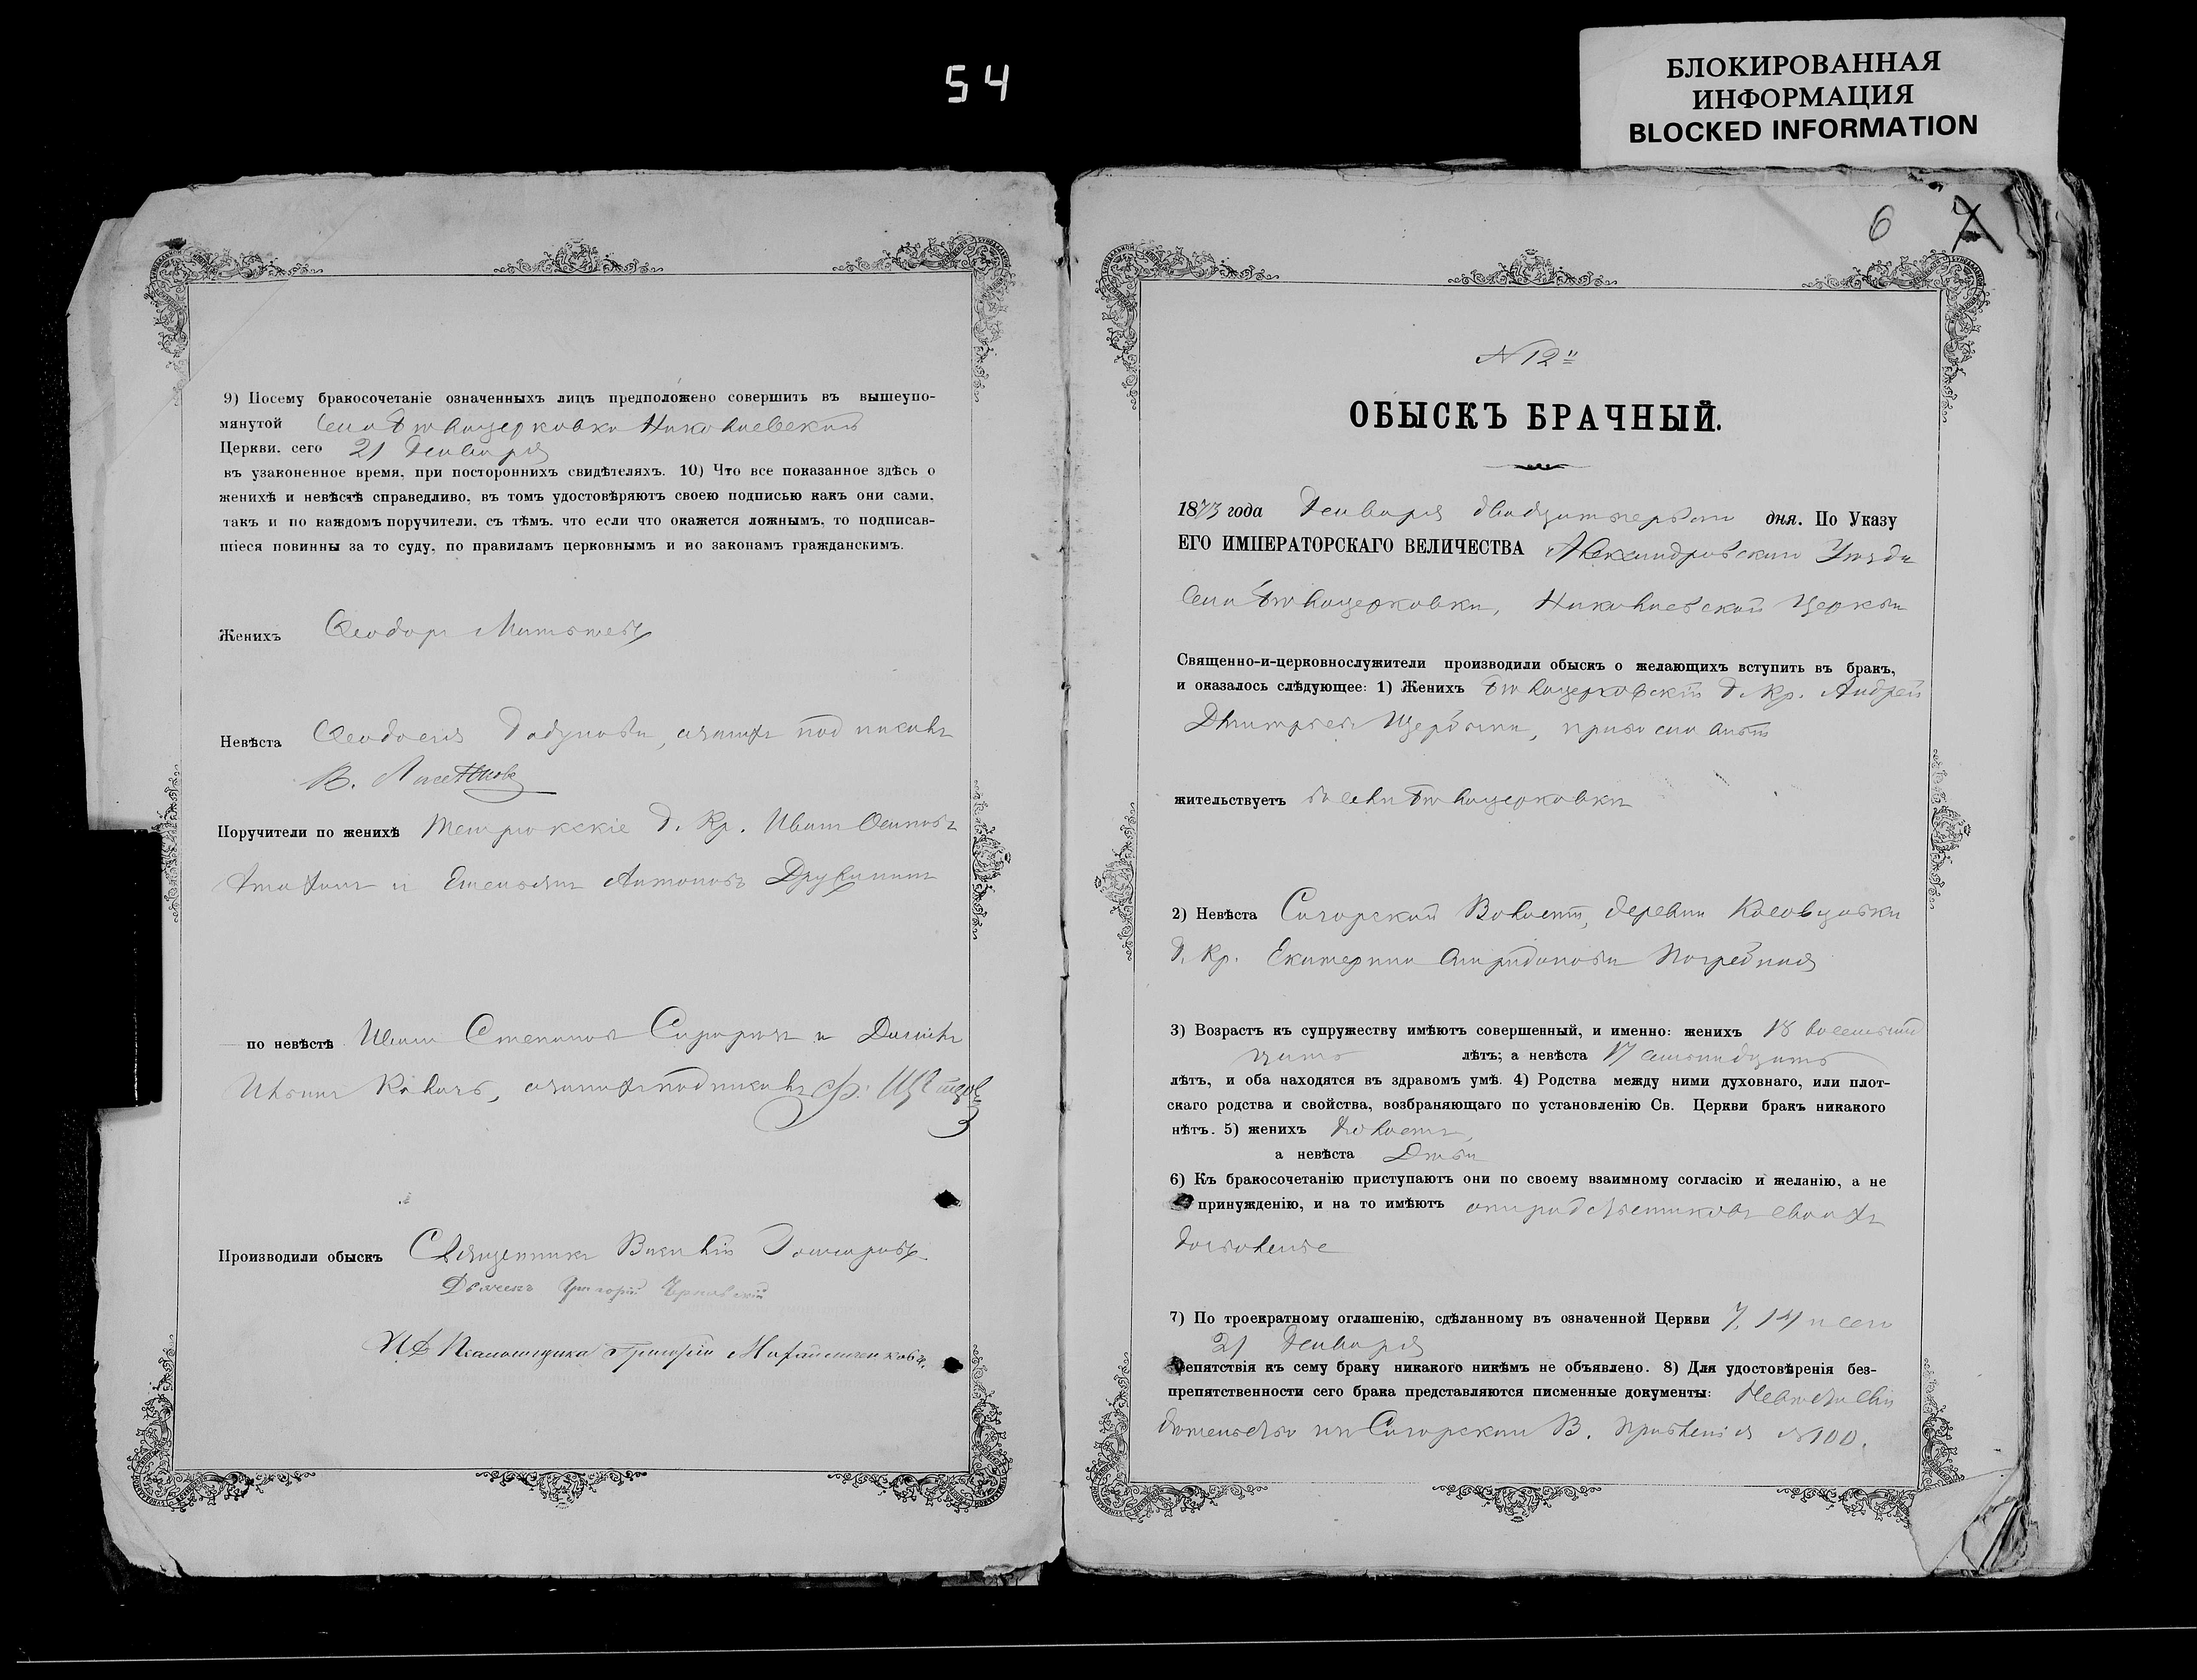 54
БЛОКИРОВАННАЯ
ИНФОРМАЦИЯ
BLOCKED INFORMATION
9) Посему бракосочетаніе означенныхъ лицъ предположено совершить въ вышеупо-
мянутой Села Бѣлоцерковки Николаевской
Церкви, сего 21 Января
въ узаконенное время, при постороннихъ свидѣтеляхъ. 10) Что все показанное здѣсь о
женихѣ и невѣстѣ справедливо, въ томъ удостовѣряютъ своею подписью какъ они сами,
такъ и по каждомъ поручители, съ тѣмъ, что если что окажется ложнымъ, то подписав-
шіеся повинны за то суду, по правиламъ церковнымъ и по законамъ гражданскимъ.
Женихъ Ѳеодоръ
Невѣста Ѳеодосія
В.
Поручители по женихѣ г. Кр. Иванъ Осиповъ
и Емельянъ Антоновъ
по невѣстѣ Иванъ Степановъ и
Ильинъ Коваль,
Производили обыскъ Священникъ Василій
Дьячекъ Григорій
И Д Псаломщика Григорій
6 7
N 12
ОБЫСКЪ БРАЧНЫЙ.
1873 года Января двадцатьперваго дня. По Указу
ЕГО ИМПЕРАТОРСКАГО ВЕЛИЧЕСТВА Александровскаго Уѣзда
Села Бѣлоцерковки, Николаевской Церкви
Священно-и-церковнослужители производили обыскъ о желающихъ вступить въ бракъ,
и оказалось слѣдующее: 1) Женихъ Бѣлоцерковскій г. Кр. Андрей
Дмитріевъ Щербина,
жительствуетъ въ селѣ Бѣлоцерковкѣ
2) Невѣста Волости, деревни
г. Кр. Екатерина Спиридонова Погребная
3) Возрастъ къ супружеству имѣютъ совершенный, и именно: женихъ 18 восемьнад
цать лѣтъ; а невѣста 17 семьнадцать
лѣтъ, и оба находятся въ здравомъ умѣ. 4) Родства между ними духовнаго, или плот-
скаго родства и свойства, возбраняющаго по установленію Св. Церкви бракъ никакого
нѣтъ. 5) женихъ холостъ,
а невѣста Дѣва
6) Къ бракосочетанію приступаютъ они по своему взаимному согласію и желанію, а не
принужденію, и на то имѣютъ отъ родственниковъ своихъ
дозволеніе
7) По троекратному оглашенію, сдѣланному въ означенной Церкви 7, 14 и сего
21 Января
репятствія къ сему браку никакого никѣмъ не объявлено. 8) Для удостовѣренія без-
препятственности сего брака представляются писменные документы:
В. Правленія № 100.